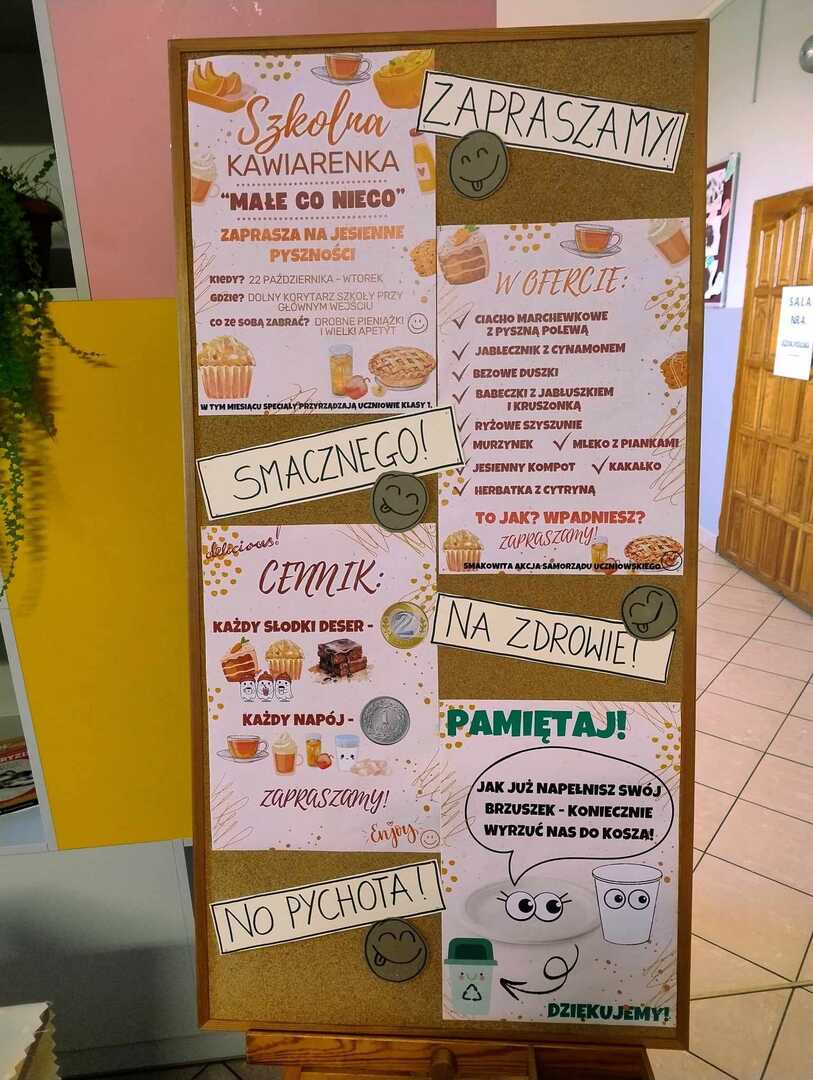 Szkolna
KAWIARENKA
"MAŁE CO NIECO"
ZAPRASZA NA JESIENNE
PYSZNOŚCI
KIEDY? 22 PAŹDZIERNIKA - WTOREK
GDZIE? DOLNY KORYTARZ SZKOŁY PRZY
GŁÓWNYM WEJŚCIU
CO ZE SOBĄ ZABRAĆ? DROBNE PIENIĄŻKI
I WIELKI APETYT
W TYM MIESIĄCU SPECJAŁY PRZYRZĄDZAJĄ UCZNIOWIE KLASY 1.
ZAPRASZAMY!
W OFERCIE:
CIACHO MARCHEWKOWE
Z PYSZNĄ POLEWĄ
JABŁECZNIK Z CYNAMONEM
BEZOWE DUSZKI
BABECZKI Z JABŁUSZKIEM
I KRUSZONKĄ
RYŻOWE SZYSZUNIE
MURZYNEK MLEKO Z PIANKAMI
JESIENNY KOMPOT KAKAŁKO
HERBATKA Z CYTRYNĄ
TO JAK? WPADNIESZ?
ZAPRASZAMY!
SMAKOWITA AKCJA SAMORZĄDU UCZNIOWSKIEGO
SMACZNEGO!
delicious!
CENNIK:
KAŻDY SŁODKI DESER - 2
KAŻDY NAPÓJ - 1
ZAPRASZAMY!
Enjoy
NA ZDROWIE!
PAMIĘTAJ!
JAK JUŻ NAPEŁNISZ SWÓJ
BRZUSZEK - KONIECZNIE
WYRZUĆ NAS DO KOSZA!
DZIĘKUJEMY!
NO PYCHOTA!
SALA
NR 4